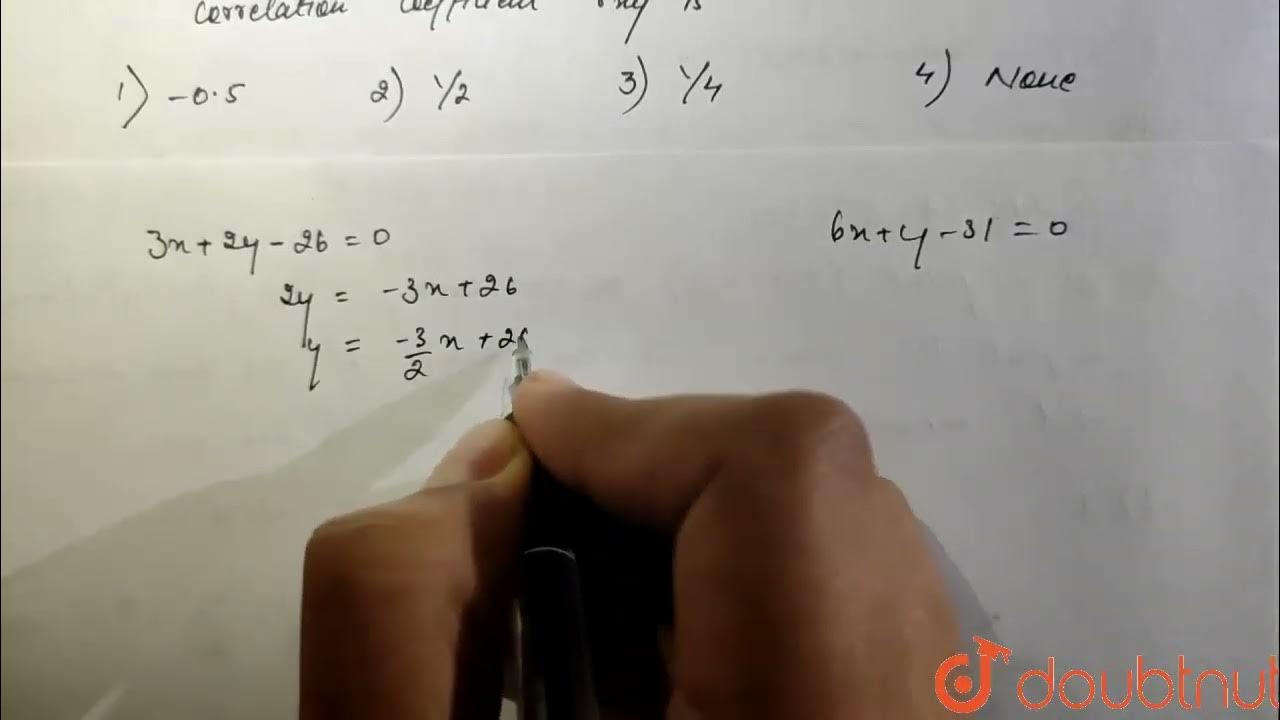 correlation coefficient rxy is
1) -0.5 2) 1/2 3) 1/4 4) None
3x + 2y - 26 = 0 6x + y - 31 = 0
2y = -3x + 26
y = -3/2 x + 26
doubtnut